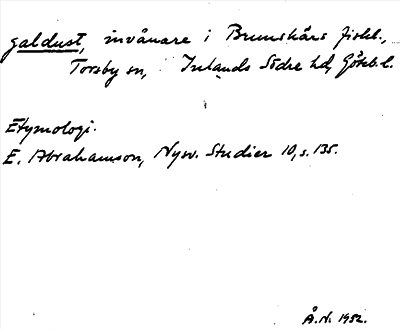 galdust, invånare i Brunskärs fiskl.,
Torsby sn, Inlands Södre hd, Götebl.
Etymologi.
E. Abrahamson, Nysv. Studier 10, s. 135.
Å.N. 1952.